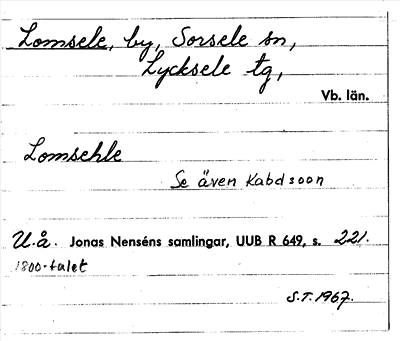 Lomsele, by, Sorsele sn,
Lycksele tg,
Vb. län.
Lomsehle
Se även Kabdsoon
U.å. Jonas Nenséns samlingar, UUB R 649, s. 221.
1800-talet
S.T. 1967.